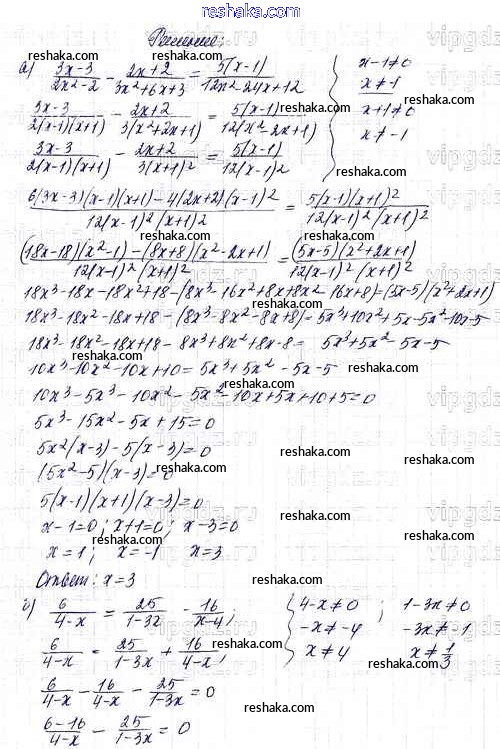 www.reshaka.com
Решение:
а) (3x-3)/(2x²-2) - (2x+2)/(3x²+6x+3) = 5(x-1)/(12x²-24x+12) { x-1≠0
x≠1
x+1≠0
x≠-1
(3x-3)/(2(x-1)(x+1)) - (2x+2)/(3(x²+2x+1)) = 5(x-1)/(12(x²-2x+1))
(3x-3)/(2(x-1)(x+1)) - (2x+2)/(3(x+1)²) = 5(x-1)/(12(x-1)²)
(6(3x-3)(x-1)(x+1)-4(2x+2)(x-1)²)/(12(x-1)²(x+1)²) = 5(x-1)(x+1)²/(12(x-1)²(x+1)²)
((18x-18)(x²-1)-(8x+8)(x²-2x+1))/(12(x-1)²(x+1)²) = (5x-5)(x²+2x+1)/(12(x-1)²(x+1)²)
18x³-18x-18x²+18-(8x³-16x²+8x+8x²-16x+8)=(5x-5)(x²+2x+1)
18x³-18x²-18x+18-(8x³-8x²-8x+8)=5x³+10x²+5x-5x²-10x-5
18x³-18x²-18x+18-8x³+8x²+8x-8= 5x³+5x²-5x-5
10x³-10x²-10x+10=5x³+5x²-5x-5
10x³-5x³-10x²-5x²-10x+5x+10+5=0
5x³-15x²-5x+15=0
5x²(x-3)-5(x-3)=0
(5x²-5)(x-3)=0
5(x-1)(x+1)(x-3)=0
x-1=0; x+1=0; x-3=0
x=1; x=-1 x=3
Ответ: x=3
б) 6/(4-x) = 25/(1-3x) - 16/(x-4); { 4-x≠0 ; 1-3x≠0
-x≠-4 -3x≠-1
x≠4 x≠1/3
6/(4-x) = 25/(1-3x) + 16/(4-x);
6/(4-x) - 16/(4-x) - 25/(1-3x) = 0
(6-16)/(4-x) - 25/(1-3x) = 0
reshaka.com
vipgdz